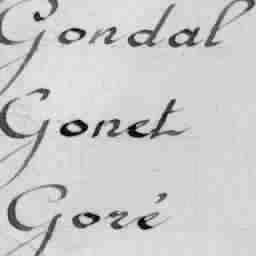 Gondal
Gonet
Goré